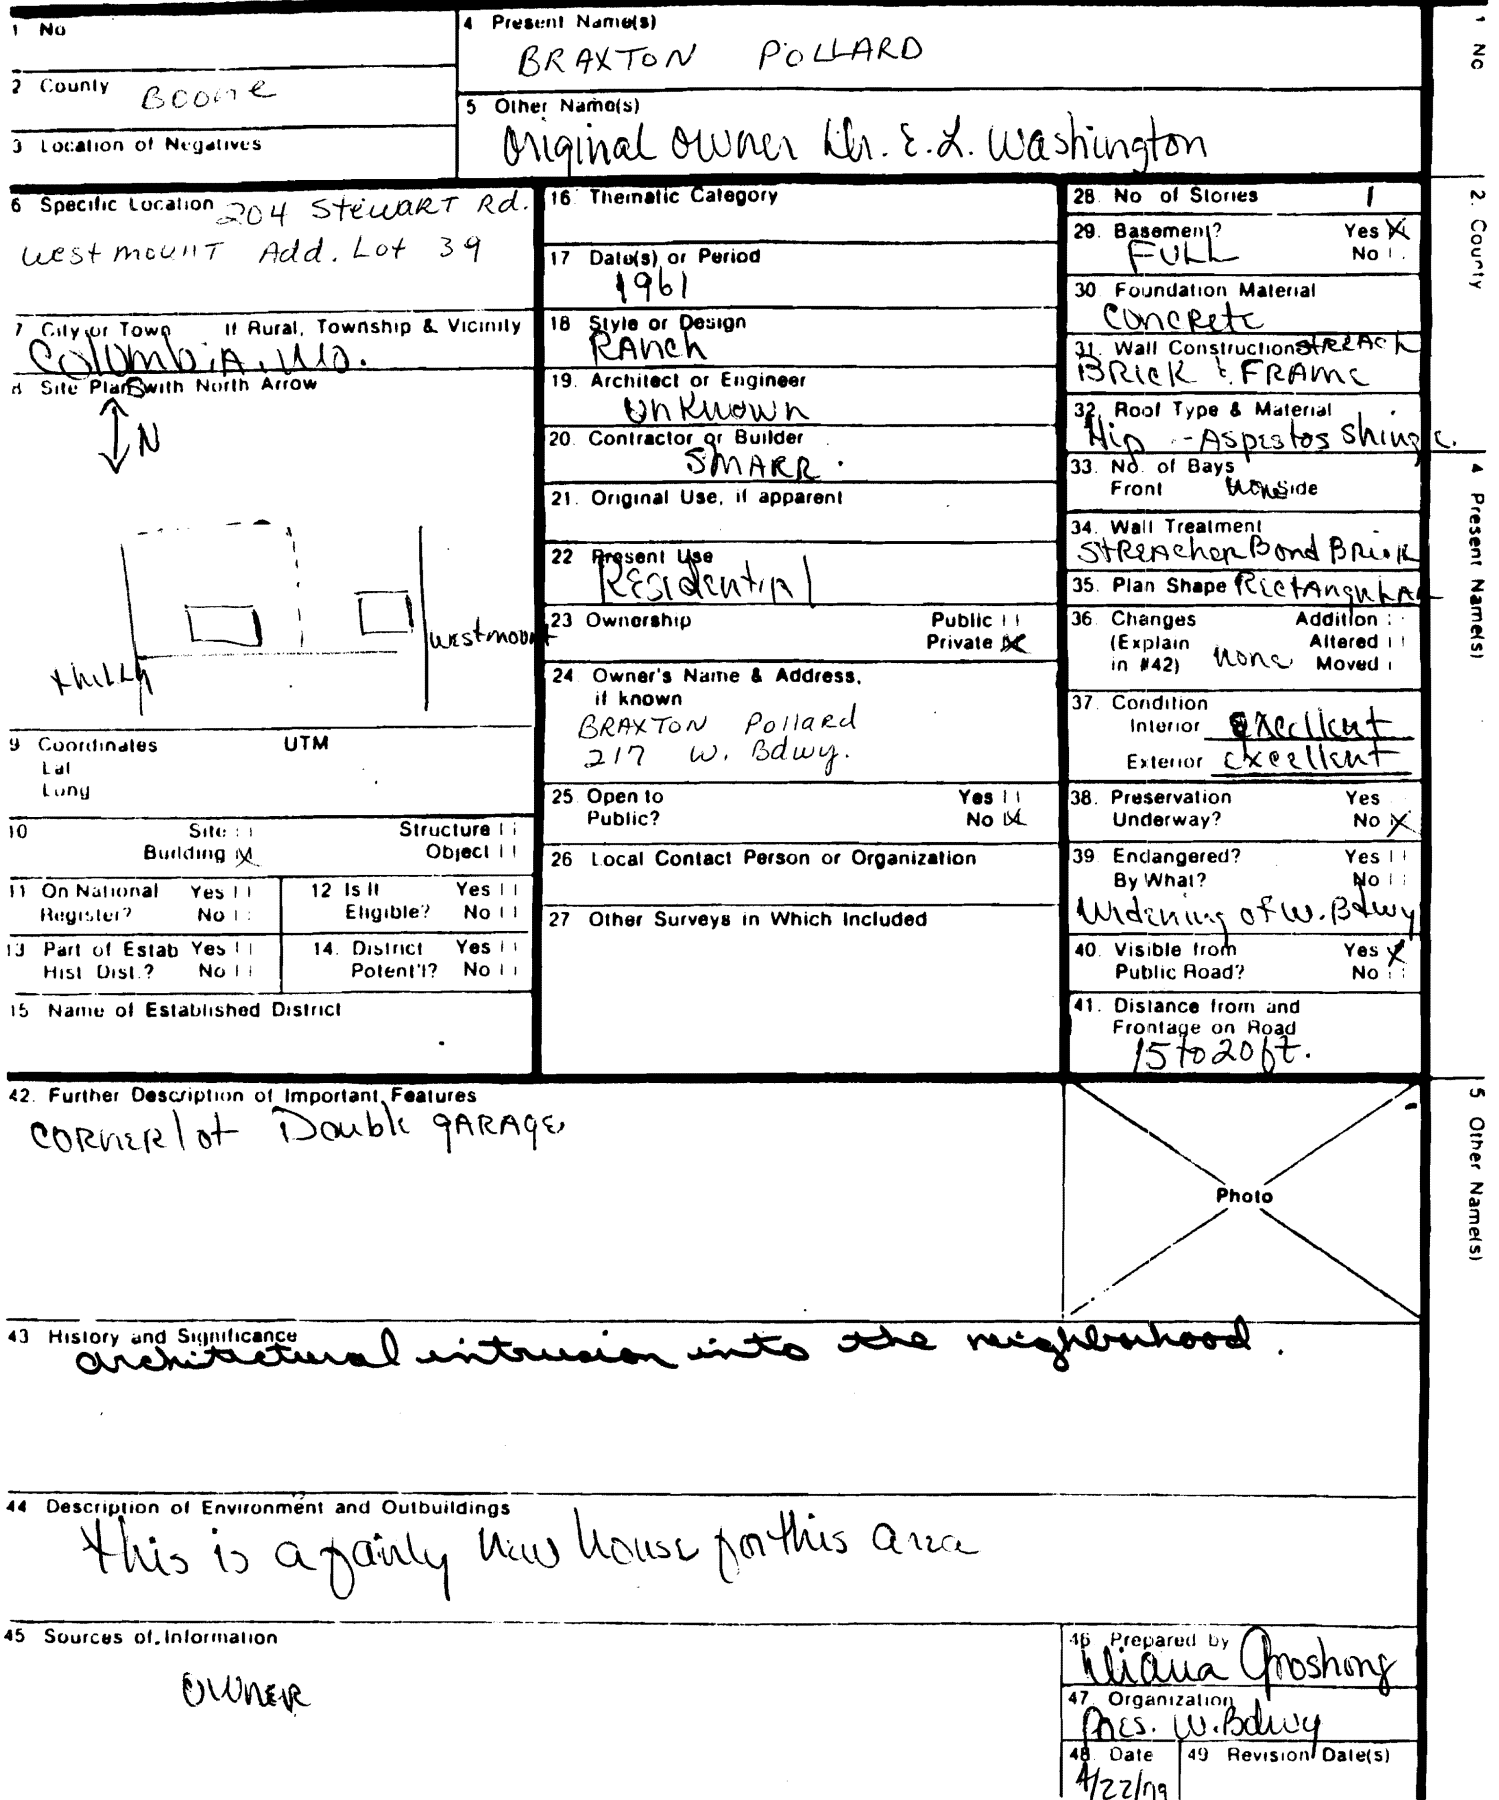 1 No
4 Present Name(s)
BRAXTON POLLARD
2 County Boone
5 Other Name(s)
Original Owner Dr. E.L. Washington
3 Location of Negatives
6 Specific Location 204 Stewart Rd.
westmount Add. Lot 39
7 City or Town If Rural, Township & Vicinity
Columbia, Mo.
8 Site Plan with North Arrow
S
N
westmount
9 Coordinates UTM
Lat
Long
10 Site
Structure
Building X
Object
11 On National Register? Yes No
12 Is It Eligible? Yes No
13 Part of Estab Hist Dist.? Yes No
14. District Potent'l? Yes No
15 Name of Established District
16 Thematic Category
17 Date(s) or Period
1961
18 Style or Design
RAnch
19. Architect or Engineer
Unknown
20. Contractor or Builder
SMARR.
21. Original Use, if apparent
22 Present Use
Residential
23 Ownership Public
Private X
24 Owner's Name & Address,
if known
BRAXTON Pollard
217 W. Bdwy.
25. Open to Yes
Public? No X
26 Local Contact Person or Organization
27 Other Surveys in Which Included
28. No of Stories 1
29. Basement? Yes X
FULL No
30 Foundation Material
Concrete
31. Wall Construction streach
BRICK & FRAME
32. Roof Type & Material
Hip - Aspestos Shingle.
33. No. of Bays
Front Side
34. Wall Treatment
STREACher Bond Brick
35. Plan Shape RectAngulAR
36. Changes Addition
(Explain Altered
in #42) none Moved
37. Condition
Interior excellent
Exterior excellent
38. Preservation Yes
Underway? No X
39. Endangered? Yes
By What? No
Widening of W. Bdwy
40. Visible from Yes X
Public Road? No
41. Distance from and
Frontage on Road
15 to 20 ft.
42. Further Description of Important Features
CORNER lot Double GARAGE
Photo
43 History and Significance
architectural intrusion into the neighborhood.
44 Description of Environment and Outbuildings
this is a fairly new house for this area
45 Sources of Information
OWNER
46 Prepared by
Groshong
47. Organization
W. Bdwy
48. Date
4/22/79
49 Revision Date(s)
1 No
2. County
4 Present Name(s)
5 Other Name(s)